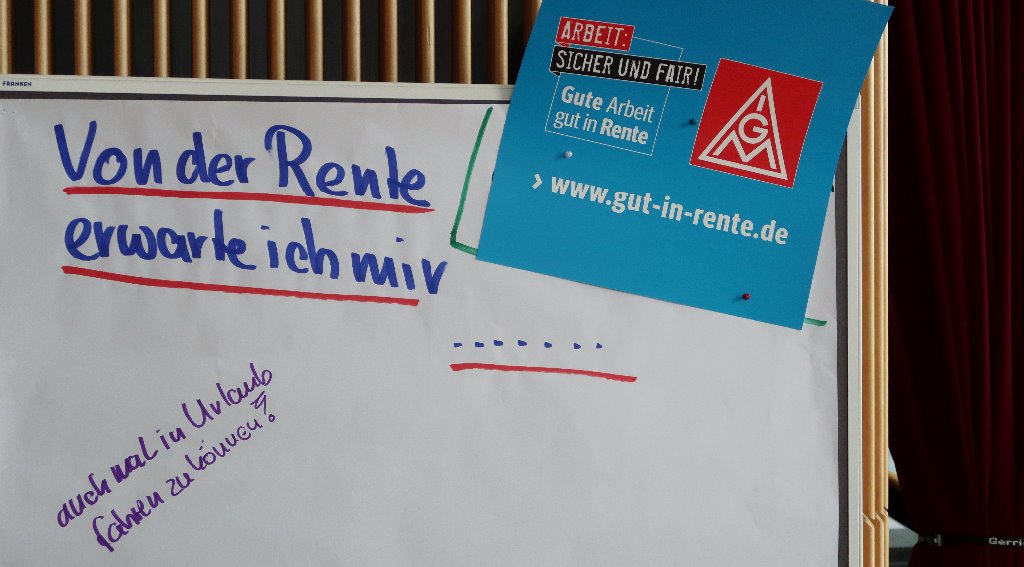 FRANKEN
ARBEIT:
SICHER UND FAIR!
Gute Arbeit
gut in Rente
IGM
› www.gut-in-rente.de
Von der Rente
erwarte ich mir
.......
auch mal in Urlaub
fahren zu können?
Gerri